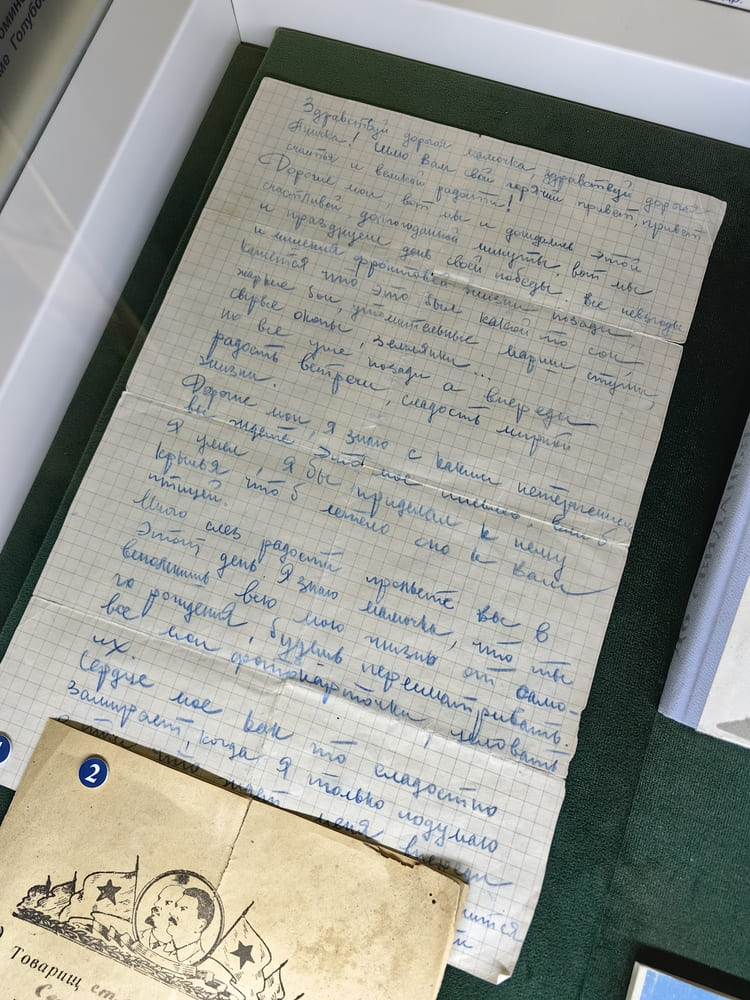 Здравствуй дорогая мамочка, здравствуй дорогая
! Шлю Вам свой горячий привет, привет
счастья и великой радости!
Дорогие мои, вот мы и дождались этой
счастливой долгожданной минуты, вот мы
и празднуем день своей победы. Все невзгоды
и лишения фронтовой жизни позади,
кажется что это был какой то сон,
жаркие бои, утомительные марши, стужи,
сырые окопы, землянки...
но все уже позади а впереди
радость встречи, сладость мирной
жизни.
Дорогие мои, я знаю с каким нетерпением
вы ждете это мое письмо,
я умел, я бы приделал к нему
крылья что б летело оно к вам
птицей.
Много слез радости прольете вы в
этот день. Я знаю мамочка, что ты
вспомнишь всю мою жизнь от само-
го рождения, будешь пересматривать
все мои фотокарточки, целовать
их.
Сердце мое как то сладостно
замирает, когда я только подумаю
о том что ждет меня впереди
2
Товарищ